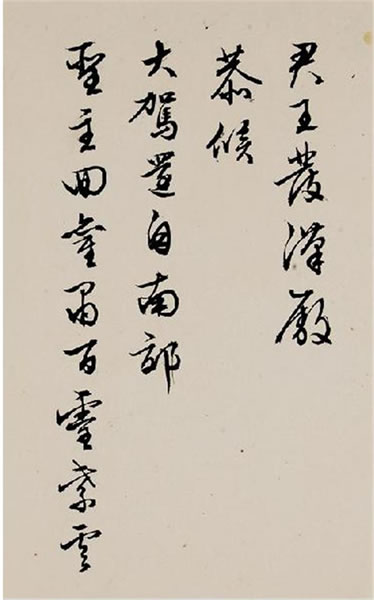 君王發漢
恭候
大駕還自南郊
聖主回鑾肅百靈紫雲